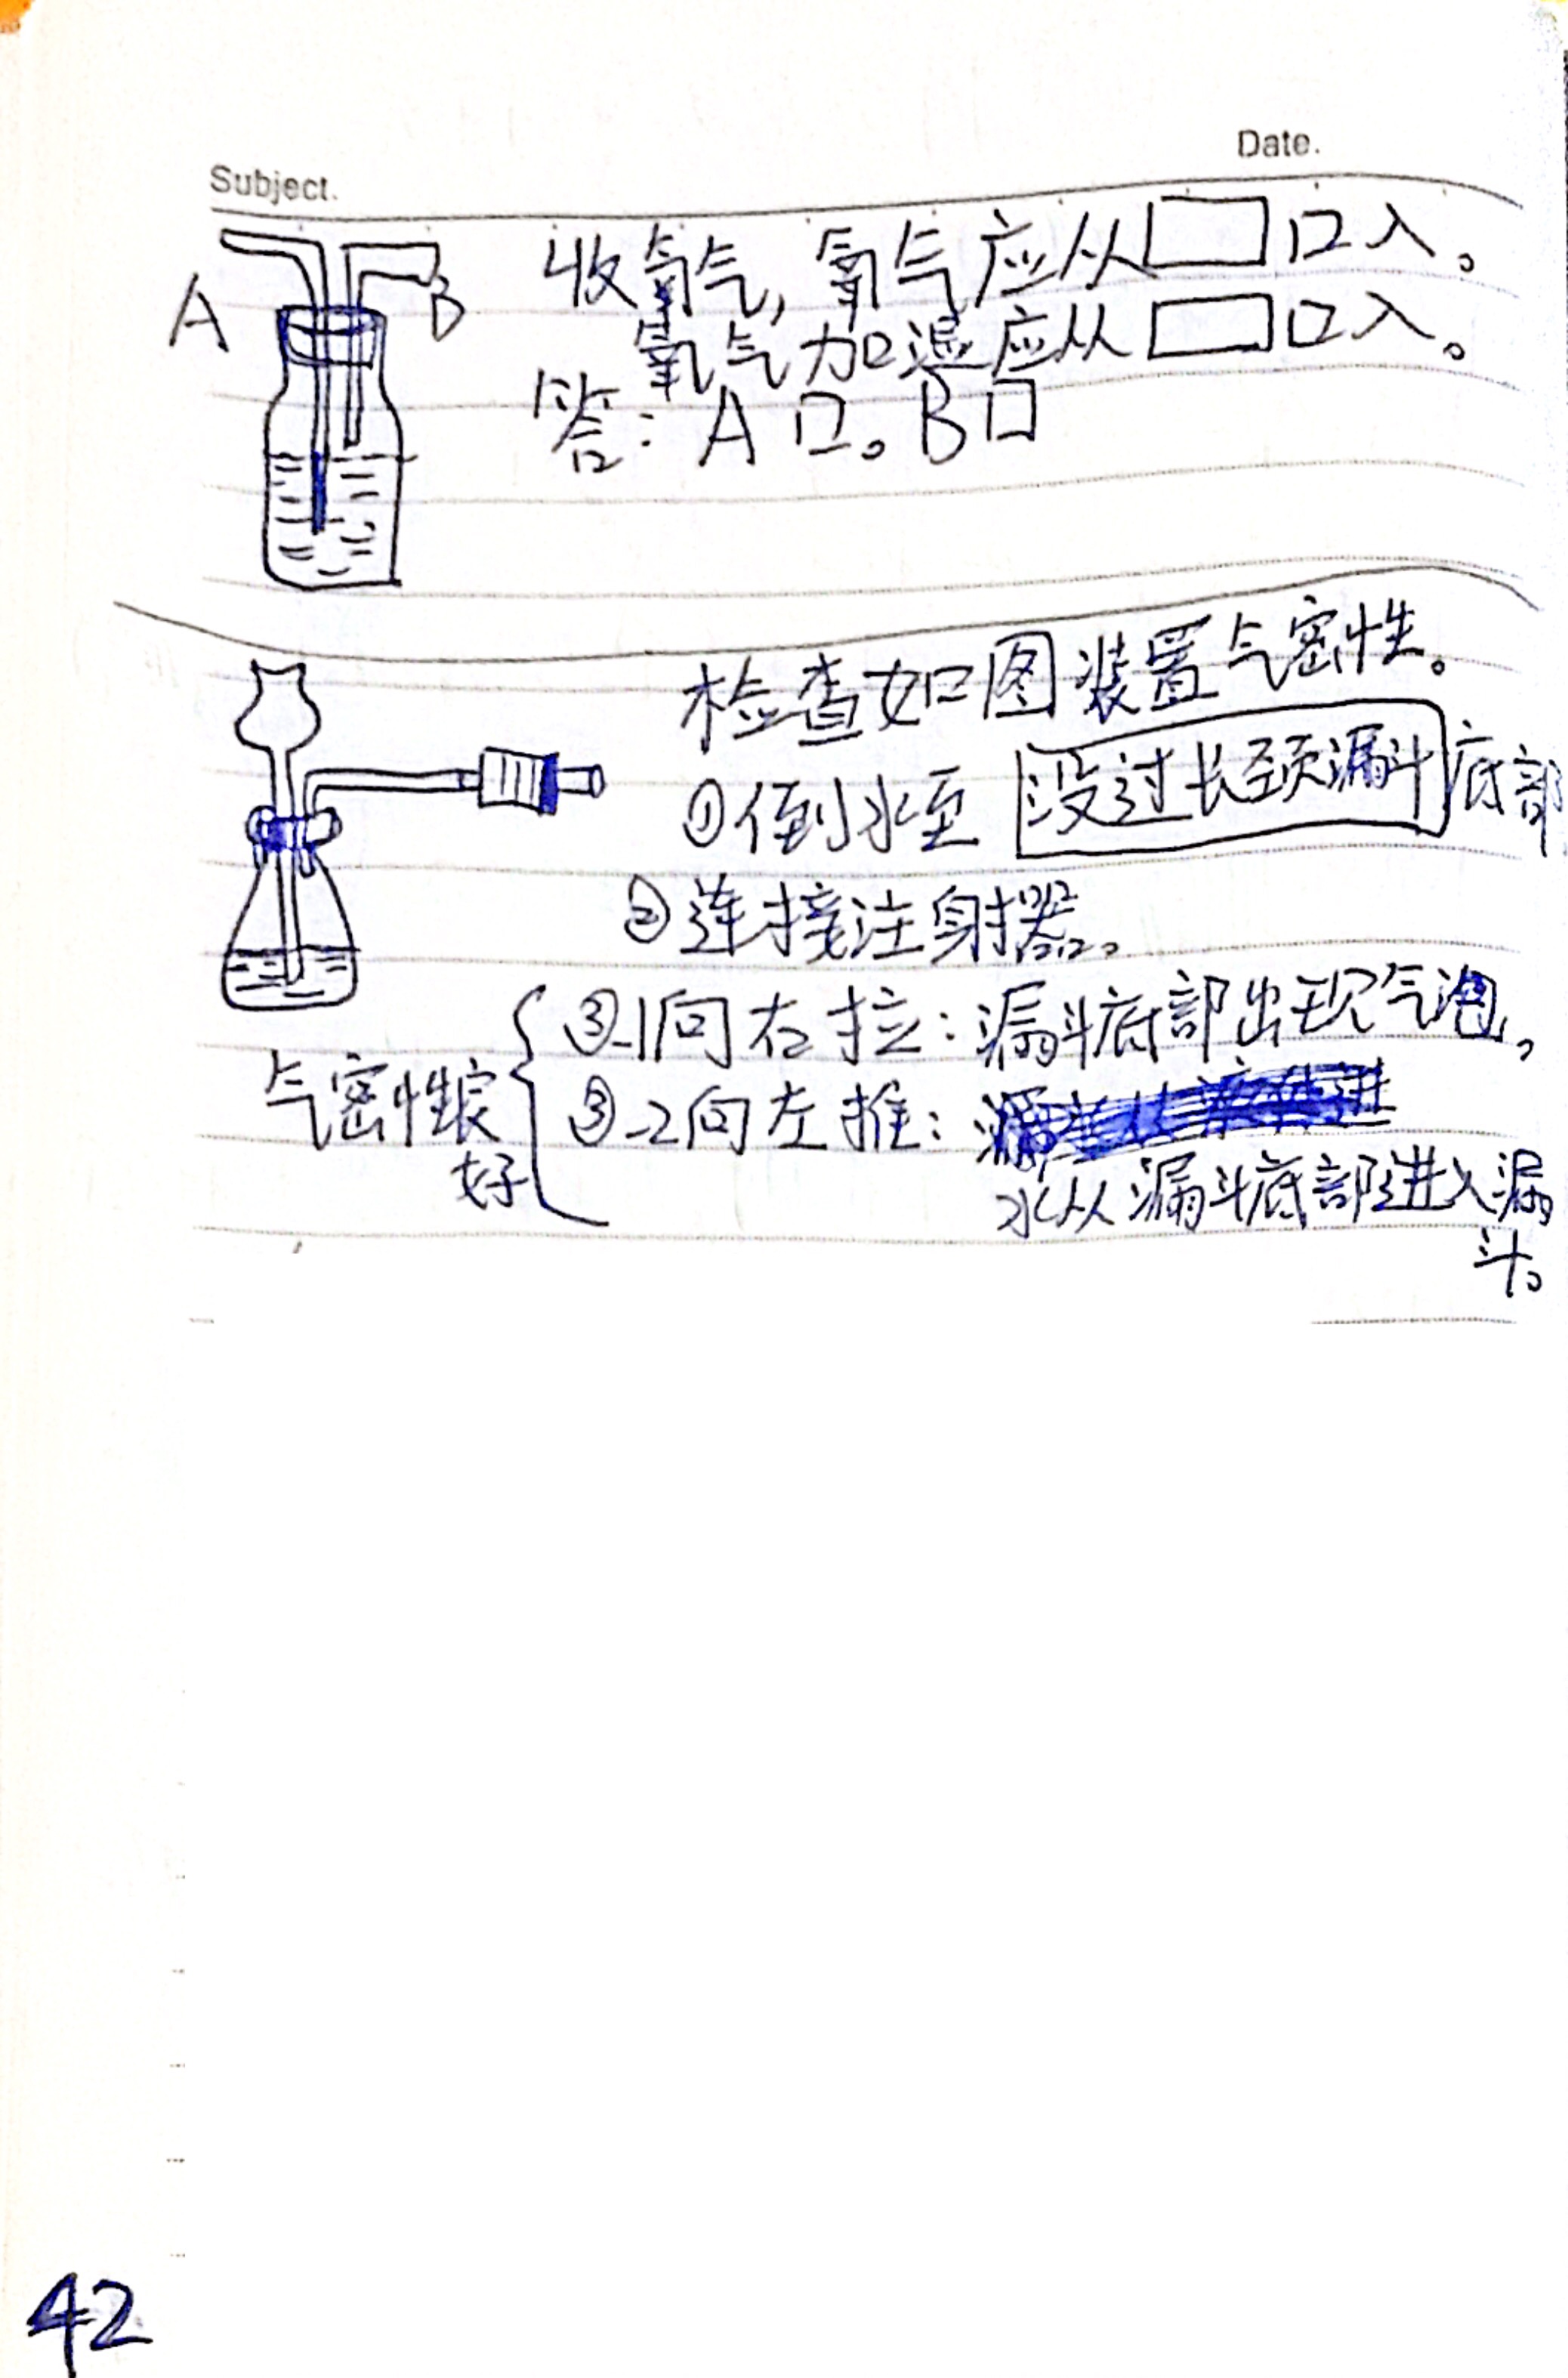 Subject.
Date.
A
B
收氧气,氧气应从□口入。
氧气加湿应从□口入。
答:A口。B口
检查如图装置气密性。
①倒水至没过长颈漏斗底部
②连接注射器。
③-1向右拉:漏斗底部出现气泡,
气密性良好
③-2向左推:
水从漏斗底部进入漏
斗。
42